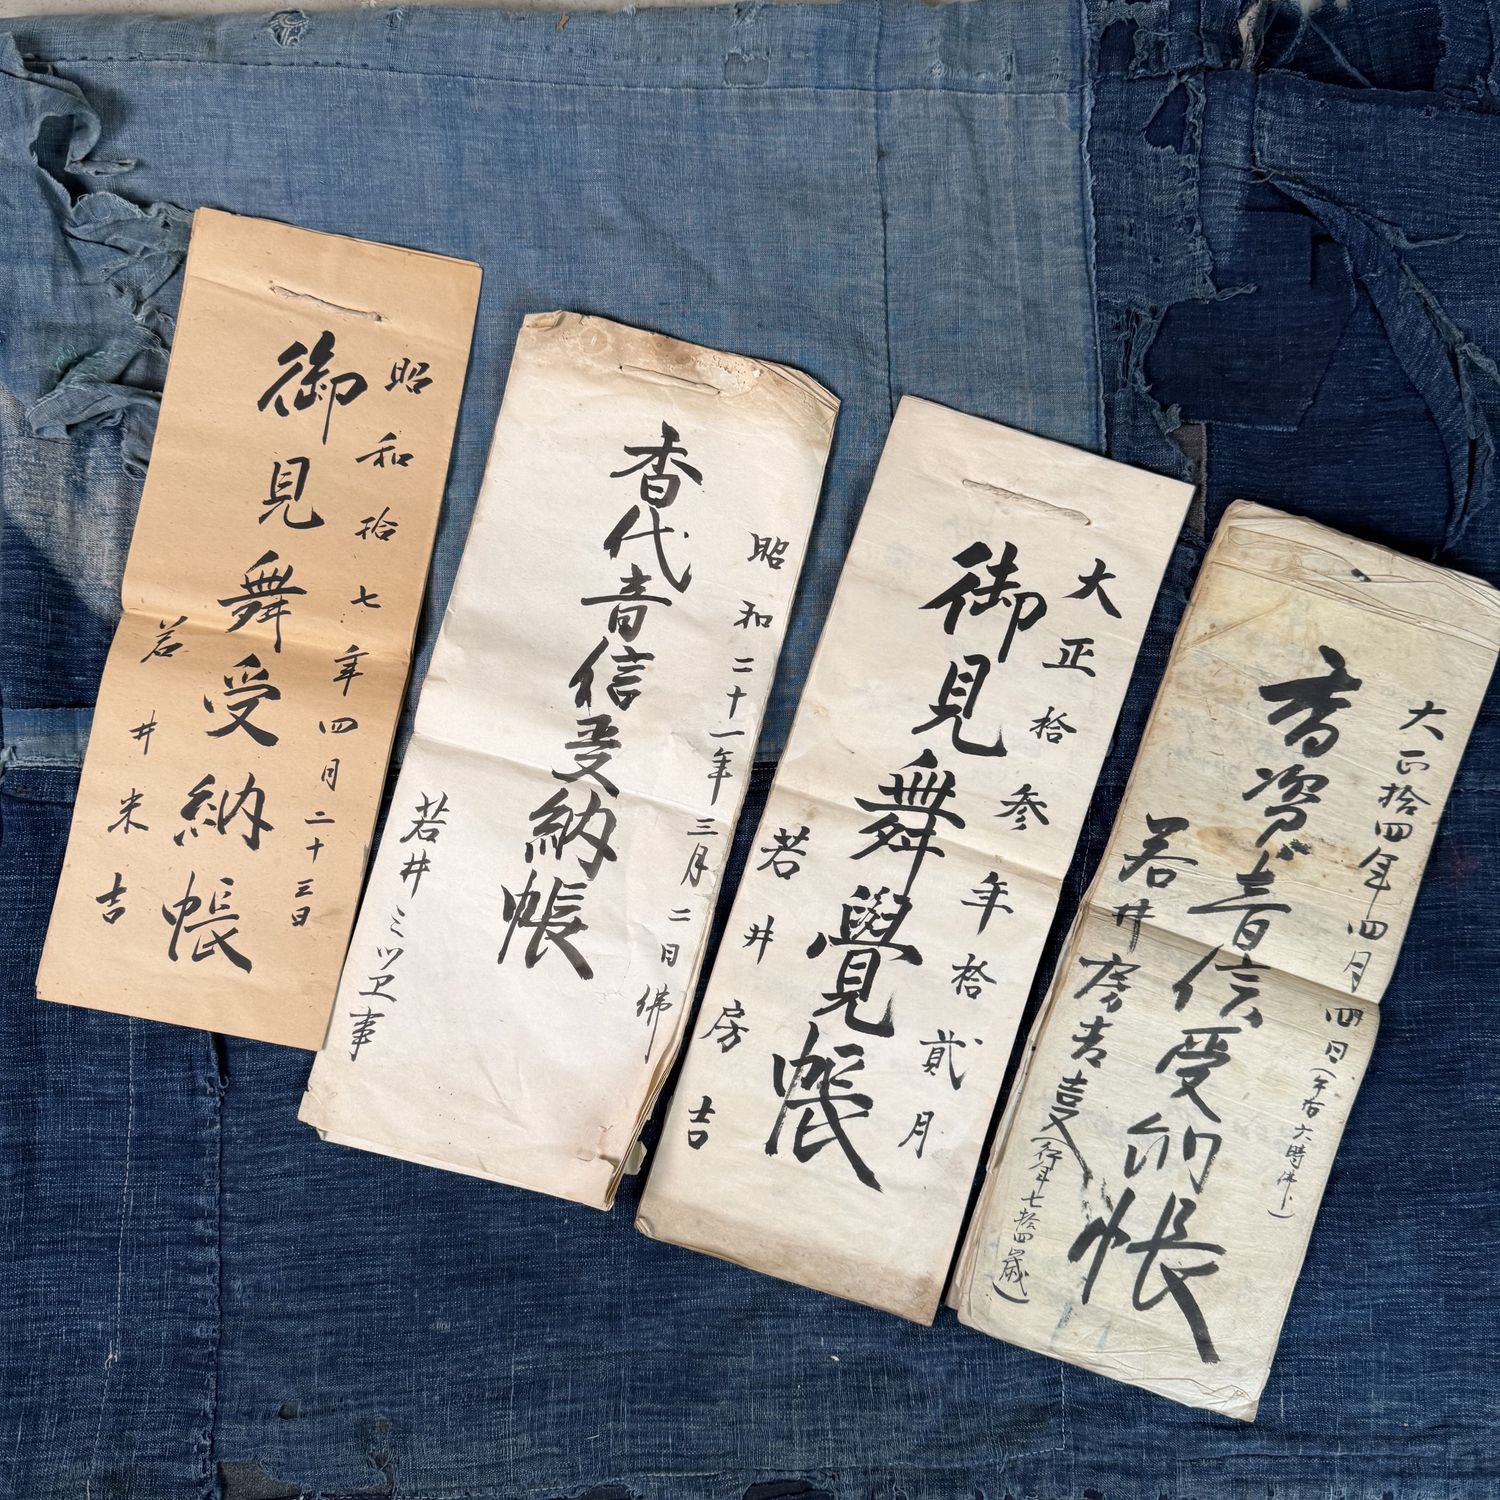 昭和拾七年四月二十三日
御見舞受納帳
若井米吉
昭和二十一年三月二日佛
香代音信受納帳
若井ミツヱ事
大正拾参年拾貳月
御見舞覺帳
若井房吉
大正拾四年四月四日(午后六時半)
香資音信受納帳
若井房吉㐂(行年七拾四歳)